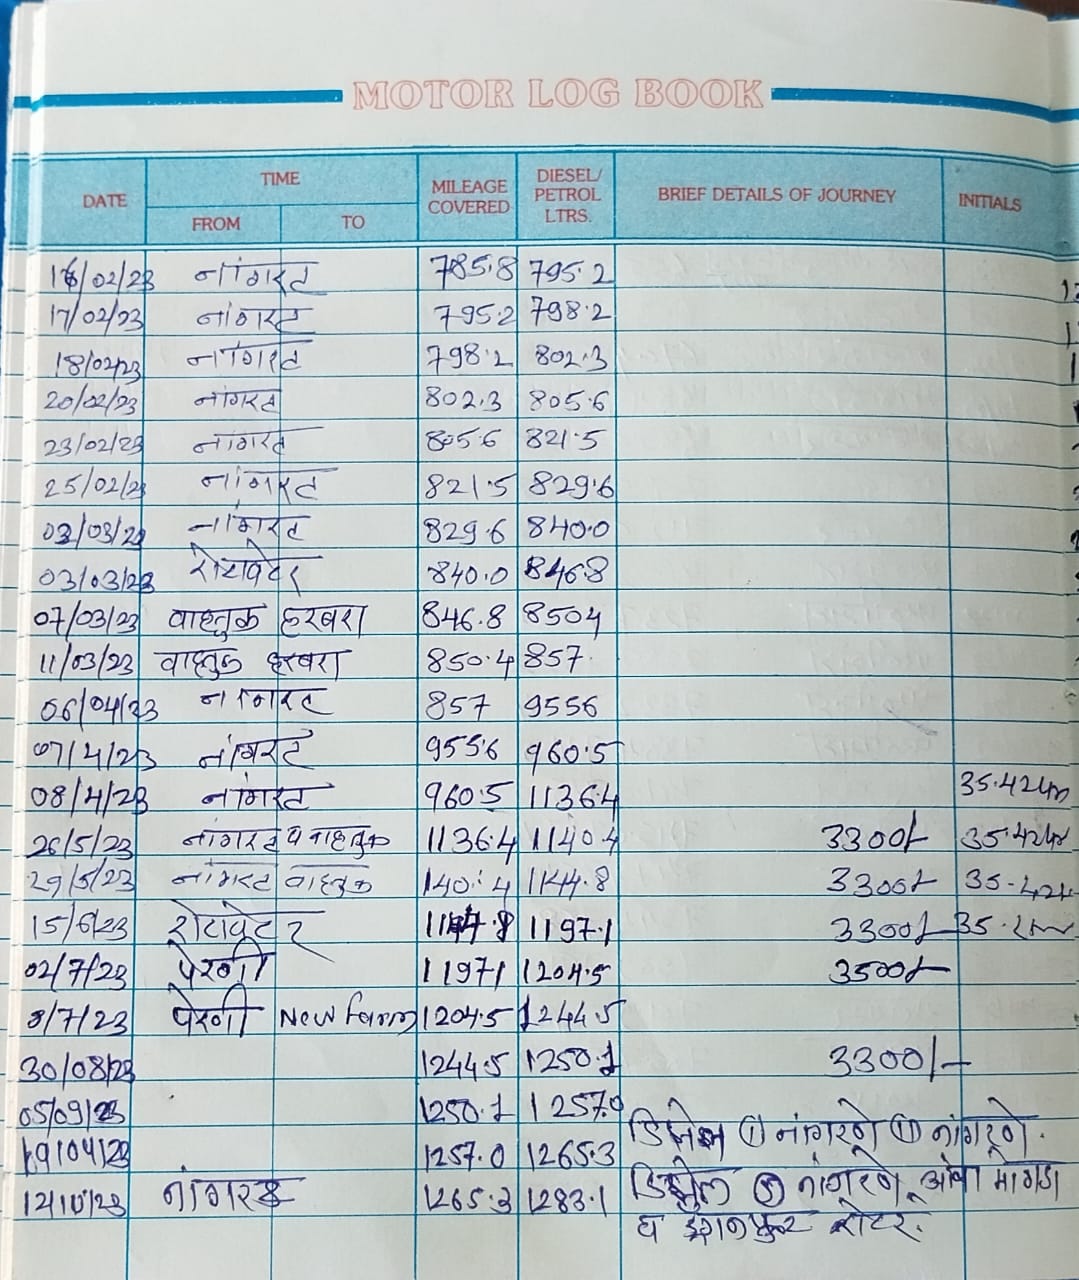 MOTOR LOG BOOK
DATE TIME FROM TO MILEAGE COVERED DIESEL/ PETROL LTRS. BRIEF DETAILS OF JOURNEY INITIALS
16/02/23 नांगरट 785.8 795.2
17/02/23 नांगरट 795.2 798.2
18/02/23 नांगरट 798.2 802.3
20/02/23 नांगरट 802.3 805.6
23/02/23 नांगरट 805.6 821.5
25/02/23 नांगरट 821.5 829.6
02/03/23 नांगरट 829.6 840.0
03/03/23 रोटावेटर 840.0 846.8
07/03/23 वाहतुक हरबरा 846.8 8504
11/03/23 वाहतुक हरबरा 850.4 857
06/04/23 नांगरट 857 9556
07/4/23 नांगरट 955.6 960.5
08/4/23 नांगरट 960.5 1136.4 35.42
26/5/23 नांगरट व वाहतुक 1136.4 1140.4 3300/- 35.42
29/5/23 नांगरट वाहतुक 1140.4 1144.8 3300/- 35.42
15/6/23 रोटावेटर 1144.8 1197.1 3300/-
02/7/23 पेरणी 11971 1204.5 3500/-
8/7/23 पेरणी New farm 1204.5 1244.5
30/08/23 1244.5 1250.1 3300/-
05/09/23 1250.1 1257.0
1257.0 1265.3 नांगरणे नांगरणे.
12/10/23 नांगरट 1265.3 1283.1 नांगरणे
व रोटर.